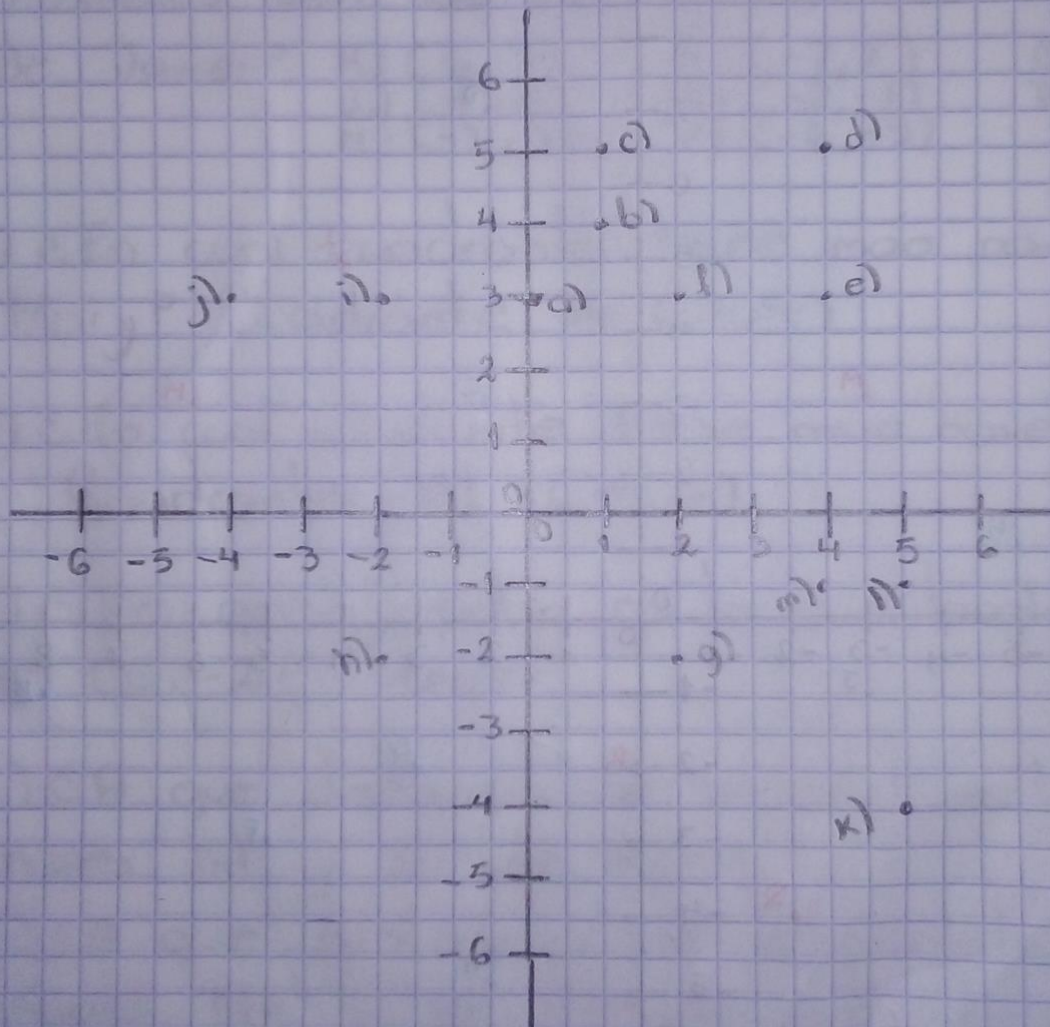 6
5 c) d)
4 b)
j) i) 3 a) f) e)
2
1
0
-6 -5 -4 -3 -2 -1 0 1 2 3 4 5 6
-1 m) l)
h) -2 g)
-3
-4 k)
-5
-6